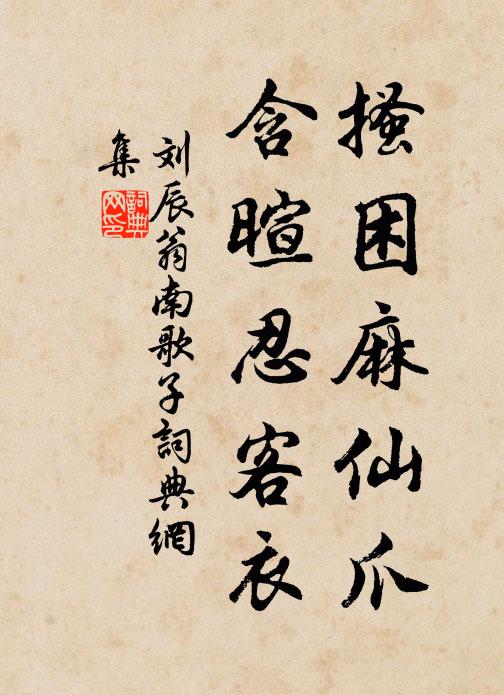 搔困麻仙爪
含暄忍客衣
刘辰翁南歌子詞典網
集
詞典网印